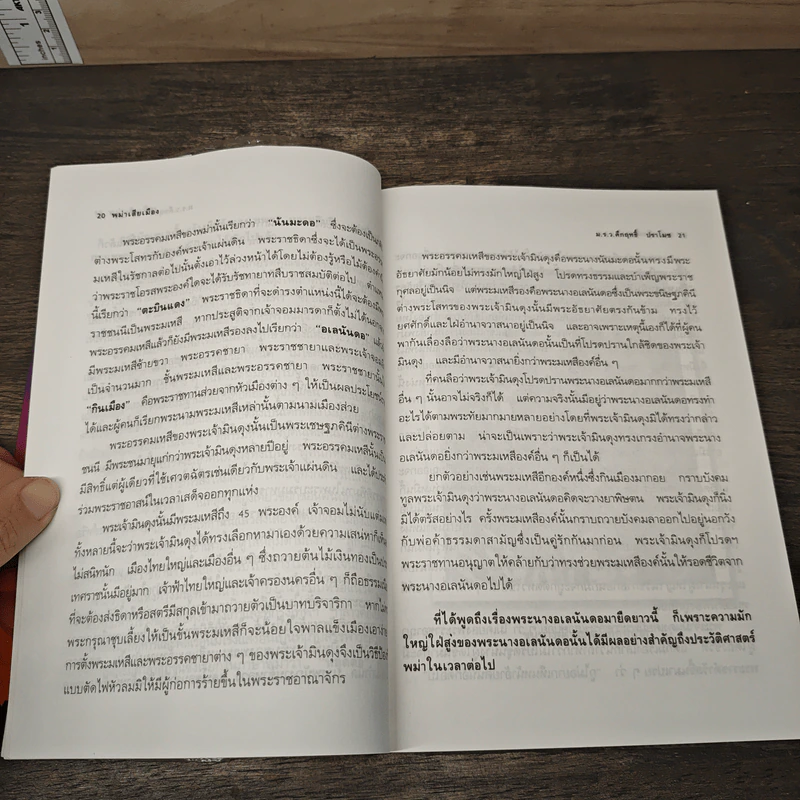 inches
1
2
3
20 พม่าเสียเมือง
พระอรรคมเหสีของพม่านั้นเรียกว่า “นันมะดอ” ซึ่งจะต้องเป็น
ต่างพระโสทรกับองค์พระเจ้าแผ่นดิน พระราชธิดาซึ่งจะได้เป็นพระอรร
มเหสีในรัชกาลต่อไปนั้นตั้งเอาไว้ล่วงหน้าได้โดยไม่ต้องรู้หรือไม่ต้อง
ว่าพระราชโอรสพระองค์ใดจะได้รับรัชทายาทสืบราชสมบัติต่อไป
นี้เรียกว่า “ตะบินแดง” พระราชธิดาที่จะดำรงตำแหน่งนี้ได้จะต้องมี
ราชชนนีเป็นพระมเหสี หากประสูติจากเจ้าจอมมารดาก็ตั้งไม่ได้
พระอรรคมเหสีแล้วก็ยังมีพระมเหสีรองลงไปเรียกว่า “อเลนันดอ”
มีพระมเหสีซ้ายขวา พระอรรคชายา พระราชชายาและพระเจ้าจอม
เป็นจำนวนมาก ชั้นพระมเหสีและพระอรรคชายา พระราชชายานั้น
“กินเมือง” คือพระราชทานส่วยจากหัวเมืองต่าง ๆ ให้เป็นผลประโยชน์
ได้และผู้คนก็เรียกพระนามพระมเหสีเหล่านั้นตามนามเมืองส่วย
พระอรรคมเหสีของพระเจ้ามินดุงนั้นเป็นพระเชษฐภคินีต่างพระราช
ชนนี มีพระชนมายุแก่กว่าพระเจ้ามินดุงหลายปีอยู่ พระอรรคมเหสีนั้น
มีสิทธิ์แต่ผู้เดียวที่ใช้เศวตฉัตรเช่นเดียวกับพระเจ้าแผ่นดิน และได้
ร่วมพระราชอาสน์ในเวลาเสด็จออกทุกแห่ง
พระเจ้ามินดุงนั้นมีพระมเหสีถึง 45 พระองค์ เจ้าจอมไม่นับแต่
ทั้งหลายนี้จะว่าพระเจ้ามินดุงได้ทรงเลือกหามาเองด้วยความเสน่หาก็
ไม่สนิทนัก เมืองไทยใหญ่และเมืองอื่น ๆ ซึ่งถวายต้นไม้เงินทองเป็น
เทศราชนั้นมีอยู่มาก เจ้าฟ้าไทยใหญ่และเจ้าครองนครอื่น ๆ ก็ถือธรรมเนียม
ที่จะต้องส่งธิดาหรือสตรีมีสกุลเข้ามาถวายตัวเป็นบาทบริจาริกา หาก
พระกรุณาชุบเลี้ยงให้เป็นชั้นพระมเหสีก็จะน้อยใจพาลแข็งเมืองเอา
การตั้งพระมเหสีและพระอรรคชายาต่าง ๆ ของพระเจ้ามินดุงจึงเป็นวิธี
แบบตัดไฟหัวลมมิให้มีผู้ก่อการร้ายขึ้นในพระราชอาณาจักร
ม.ร.ว.คึกฤทธิ์ ปราโมช 21
พระอรรคมเหสีของพระเจ้ามินดุงคือพระนางนันมะดอนั้นทรงมีพระ
อัธยาศัยมักน้อยไม่ทรงมักใหญ่ใฝ่สูง โปรดทรงธรรมและบำเพ็ญพระราช
กุศลอยู่เป็นนิจ แต่พระมเหสีรองคือพระนางอเลนันดอซึ่งเป็นพระชนิษฐภคินี
ต่างพระโสทรของพระเจ้ามินดุงนั้นมีพระอัธยาศัยตรงกันข้าม ทรงไว้
ยศศักดิ์และใฝ่อำนาจวาสนาอยู่เป็นนิจ และอาจเพราะเหตุนี้เองก็ได้ที่ผู้คน
พากันเลื่องลือว่าพระนางอเลนันดอนั้นเป็นที่โปรดปรานใกล้ชิดของพระเจ้า
มินดุง และมีอำนาจวาสนายิ่งกว่าพระมเหสีองค์อื่น ๆ
ที่คนลือว่าพระเจ้ามินดุงโปรดปรานพระนางอเลนันดอมากกว่าพระมเหสี
อื่น ๆ นั้นอาจไม่จริงก็ได้ แต่ความจริงนั้นมีอยู่ว่าพระนางอเลนันดอทรงทำ
อะไรได้ตามพระทัยมากมายหลายอย่างโดยที่พระเจ้ามินดุงมิได้ทรงว่ากล่าว
และปล่อยตาม น่าจะเป็นเพราะว่าพระเจ้ามินดุงทรงเกรงอำนาจพระนาง
อเลนันดอยิ่งกว่าพระมเหสีองค์อื่น ๆ ก็เป็นได้
ยกตัวอย่างเช่นพระมเหสีอีกองค์หนึ่งซึ่งกินเมืองมากอย กราบบังคม
ทูลพระเจ้ามินดุงว่าพระนางอเลนันดอคิดจะวางยาพิษตน พระเจ้ามินดุงก็นิ่ง
มิได้ตรัสอย่างไร ครั้งพระมเหสีองค์นั้นกราบถวายบังคมลาออกไปอยู่นอกวัง
กับพ่อค้าธรรมดาสามัญซึ่งเป็นคู่รักกันมาก่อน พระเจ้ามินดุงก็โปรดฯ
พระราชทานอนุญาตให้คล้ายกับว่าทรงช่วยพระมเหสีองค์นั้นให้รอดชีวิตจาก
พระนางอเลนันดอไปได้
ที่ได้พูดถึงเรื่องพระนางอเลนันดอมายืดยาวนี้ ก็เพราะความมัก
ใหญ่ใฝ่สูงของพระนางอเลนันดอนั้นได้มีผลอย่างสำคัญถึงประวัติศาสตร์
พม่าในเวลาต่อไป